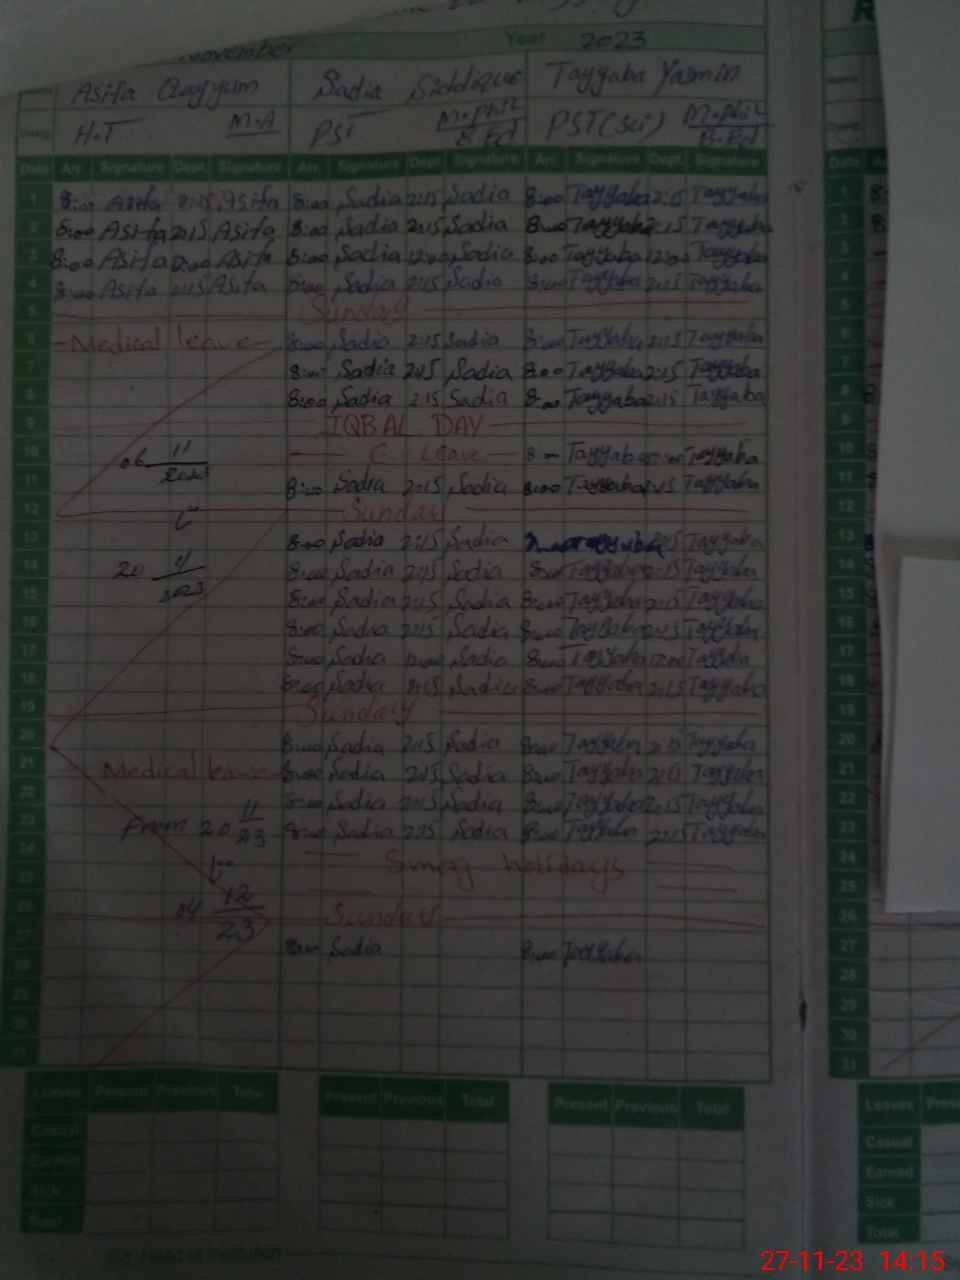 November
Year 2023
Asifa Qayyum Sadia Siddique Tayyaba Yasmin
Desig H.T M.A PST M.Phil B.Ed PST(Sci) M.Phil B.Ed
Date Arr. Signature Dept. Signature Arr. Signature Dept. Signature Arr. Signature Dept. Signature Date
1 8:00 Asifa 2:15 Asifa 8:00 Sadia 2:15 Sadia 8:00 Tayyaba 2:15 Tayyaba 1
2 8:00 Asifa 2:15 Asifa 8:00 Sadia 2:15 Sadia 8:00 Tayyaba 2:15 Tayyaba 2
3 8:00 Asifa 12:00 Asifa 8:00 Sadia 12:00 Sadia 8:00 Tayyaba 12:00 Tayyaba 3
4 8:00 Asifa 2:15 Asifa 8:00 Sadia 2:15 Sadia 8:00 Tayyaba 2:15 Tayyaba 4
5 Sunday 5
6 Medical leave 8:00 Sadia 2:15 Sadia 8:00 Tayyaba 2:15 Tayyaba 6
7 8:00 Sadia 2:15 Sadia 8:00 Tayyaba 2:15 Tayyaba 7
8 8:00 Sadia 2:15 Sadia 8:00 Tayyaba 2:15 Tayyaba 8
9 IQBAL DAY 9
10 06 11 2023 C. Leave 8:00 Tayyaba Tayyaba 10
11 8:00 Sadia 2:15 Sadia 8:00 Tayyaba 2:15 Tayyaba 11
12 Sunday 12
13 8:00 Sadia 2:15 Sadia Tayyaba 2:15 Tayyaba 13
14 20 11 2023 8:00 Sadia 2:15 Sadia 8:00 Tayyaba 2:15 Tayyaba 14
15 8:00 Sadia 2:15 Sadia 8:00 Tayyaba 2:15 Tayyaba 15
16 8:00 Sadia 2:15 Sadia 8:00 Tayyaba 2:15 Tayyaba 16
17 8:00 Sadia 12:00 Sadia 8:00 Tayyaba 12:00 Tayyaba 17
18 8:00 Sadia 2:15 Sadia 8:00 Tayyaba 2:15 Tayyaba 18
19 Sunday 19
20 8:00 Sadia 2:15 Sadia 8:00 Tayyaba 2:15 Tayyaba 20
21 Medical leave 8:00 Sadia 2:15 Sadia 8:00 Tayyaba 2:15 Tayyaba 21
22 8:00 Sadia 2:15 Sadia 8:00 Tayyaba 2:15 Tayyaba 22
23 From 20 11 23 8:00 Sadia 2:15 Sadia 8:00 Tayyaba 2:15 Tayyaba 23
24 Smog holidays 24
25 25
26 04 12 23 Sunday 26
27 8:00 Sadia 8:00 Tayyaba 27
28 28
29 29
30 30
31 31
Leaves Present Previous Total Present Previous Total Present Previous Total Leaves
Casual Casual
Earned Earned
Sick Sick
Total Total
27-11-23 14:15